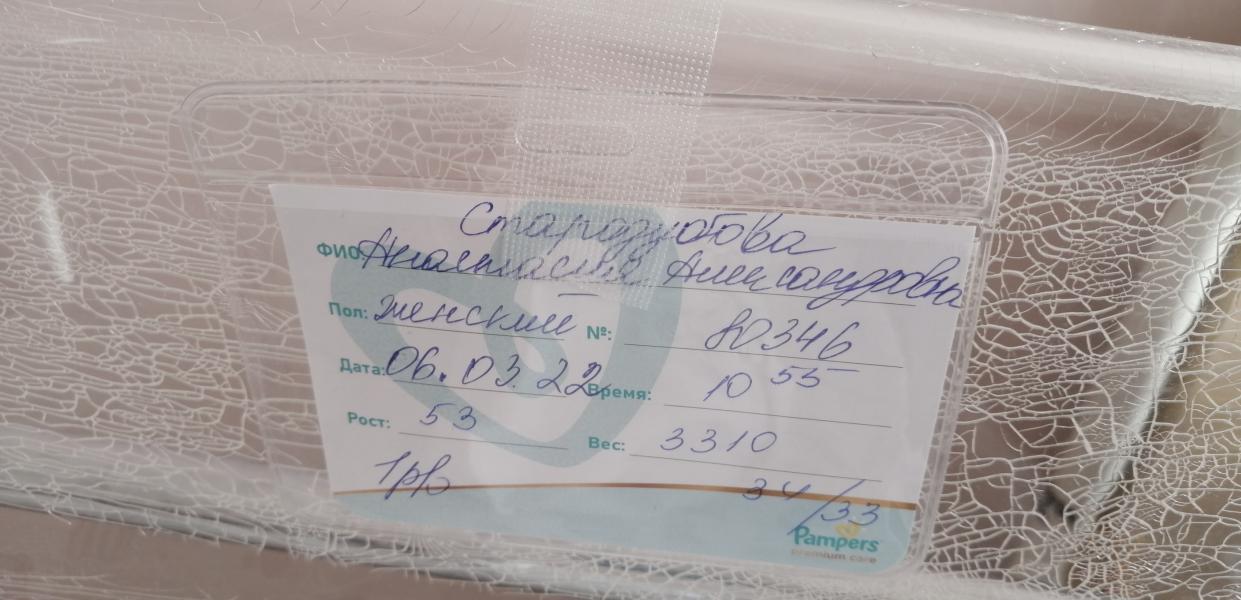 Стародубова
ФИО Анастасия Александровна
Пол: женский №: 80346
Дата: 06.03.22 Время: 10 55
Рост: 53 Вес: 3310
34/33
Pampers
premium care